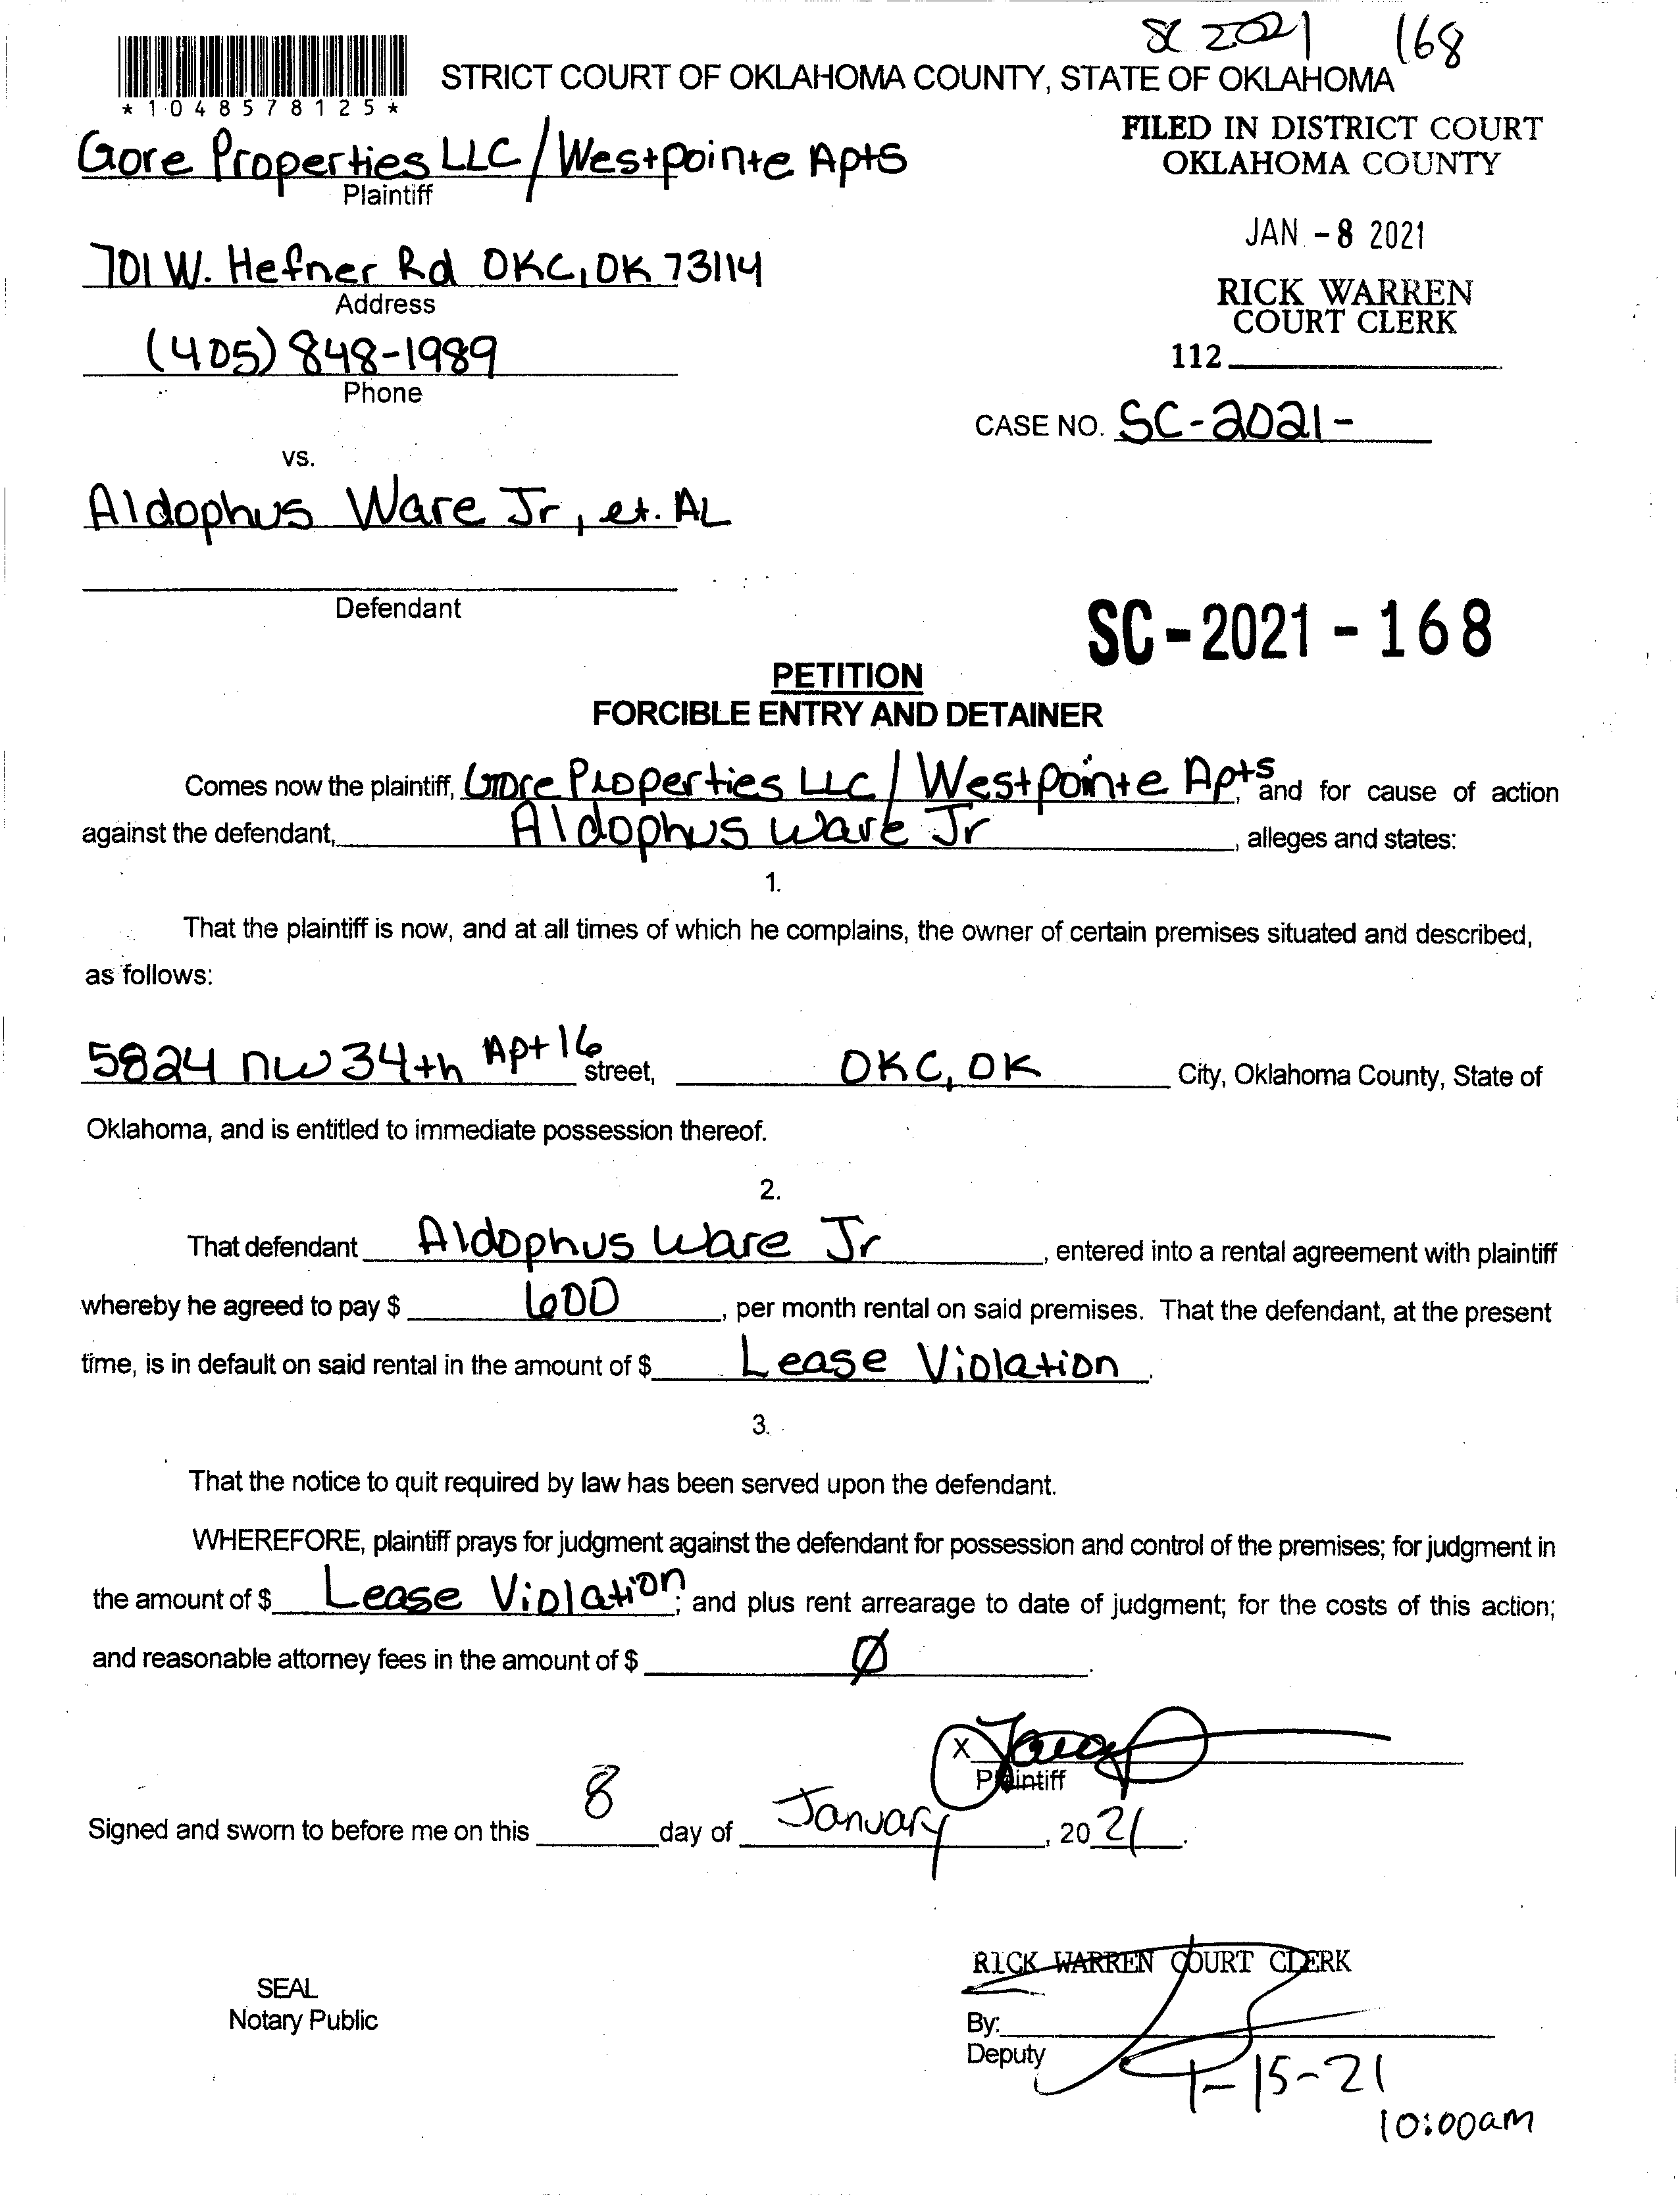 SC 2021 168
STRICT COURT OF OKLAHOMA COUNTY, STATE OF OKLAHOMA
*1048578125*
FILED IN DISTRICT COURT
OKLAHOMA COUNTY
Gore Properties LLC/Westpointe Apts
Plaintiff
JAN -8 2021
701 W. Hefner Rd OKC, OK 73114
Address
RICK WARREN
COURT CLERK
(405) 848-1989
112
Phone
CASE NO. SC-2021-
vs.
Aldophus Ware Jr, et. AL
Defendant
SC-2021-168
PETITION
FORCIBLE ENTRY AND DETAINER
Comes now the plaintiff, Gore Properties LLC/Westpointe Apts, and for cause of action
against the defendant, Aldophus Ware Jr, alleges and states:
1.
That the plaintiff is now, and at all times of which he complains, the owner of certain premises situated and described,
as follows:
5824 NW 34th Apt 16 street, OKC, OK City, Oklahoma County, State of
Oklahoma, and is entitled to immediate possession thereof.
2.
That defendant Aldophus Ware Jr, entered into a rental agreement with plaintiff
whereby he agreed to pay $ 600, per month rental on said premises. That the defendant, at the present
time, is in default on said rental in the amount of $ Lease Violation.
3.
That the notice to quit required by law has been served upon the defendant.
WHEREFORE, plaintiff prays for judgment against the defendant for possession and control of the premises; for judgment in
the amount of $ Lease Violation; and plus rent arrearage to date of judgment; for the costs of this action;
and reasonable attorney fees in the amount of $ Ø.
X
Plaintiff
Signed and sworn to before me on this 8 day of January, 2021.
RICK WARREN COURT CLERK
SEAL
Notary Public
By:
Deputy
1-15-21
10:00am